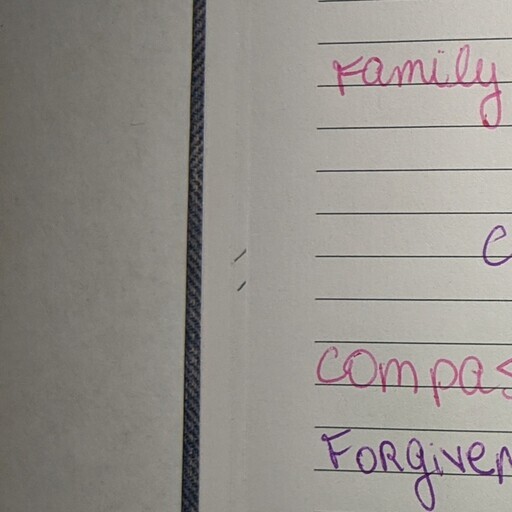 Family
C
compas
Forgiven